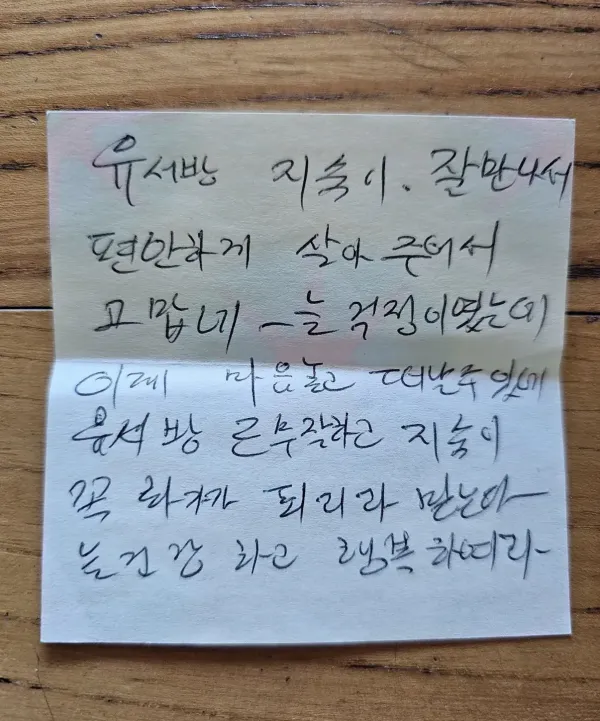 유서방 지숙이. 잘만나서
편안하게 살아 주어서
고맙네 늘 걱정이였는데
이제 마음놓고 떠날수 있네
유서방 지숙이
꼭 되리라 믿는다
늘건강 하고 행복하여라